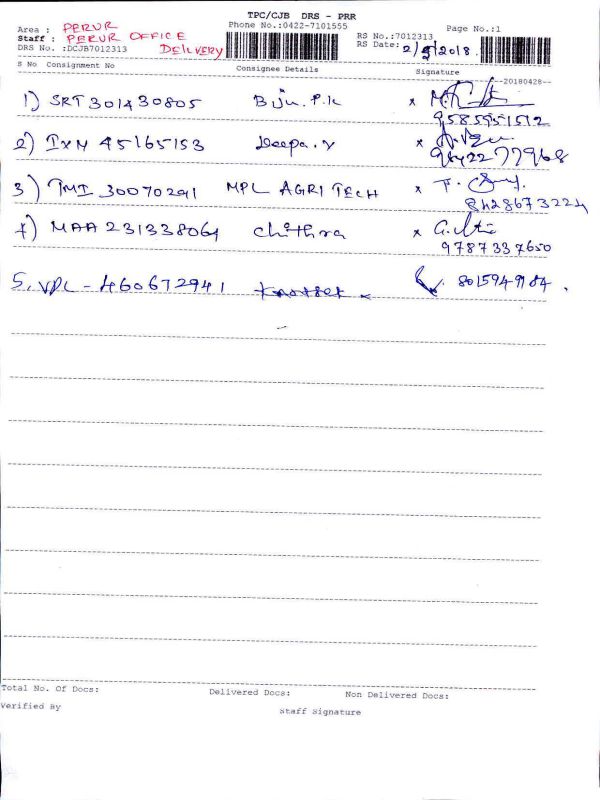 TPC/CJB DRS - PRR
Area : PERUR Phone No.:0422-7101555 RS No.:7012313 Page No.:1
Staff : PERUR OFFICE DELIVERY RS Date: 2/5/2018
DRS No. :DCJB7012313
S No Consignment No Consignee Details Signature
--20180428--
1) SRT 301430805 Biju. P.K x
9585951512
2) IXM 45165153 Deepa. v x
9442277968
3) TMI 30070291 MPL AGRI TECH x
8428673224
4) MAA 231338064 Chithra x
9787337650
5. VPL - 460672941 8015949184 .
Total No. Of Docs: Delivered Docs: Non Delivered Docs:
Verified By Staff Signature